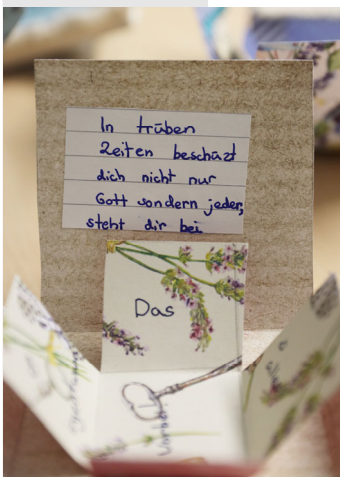 In trüben
Zeiten beschüzt
dich nicht nur
Gott sondern jeder,
steht dir bei
Das